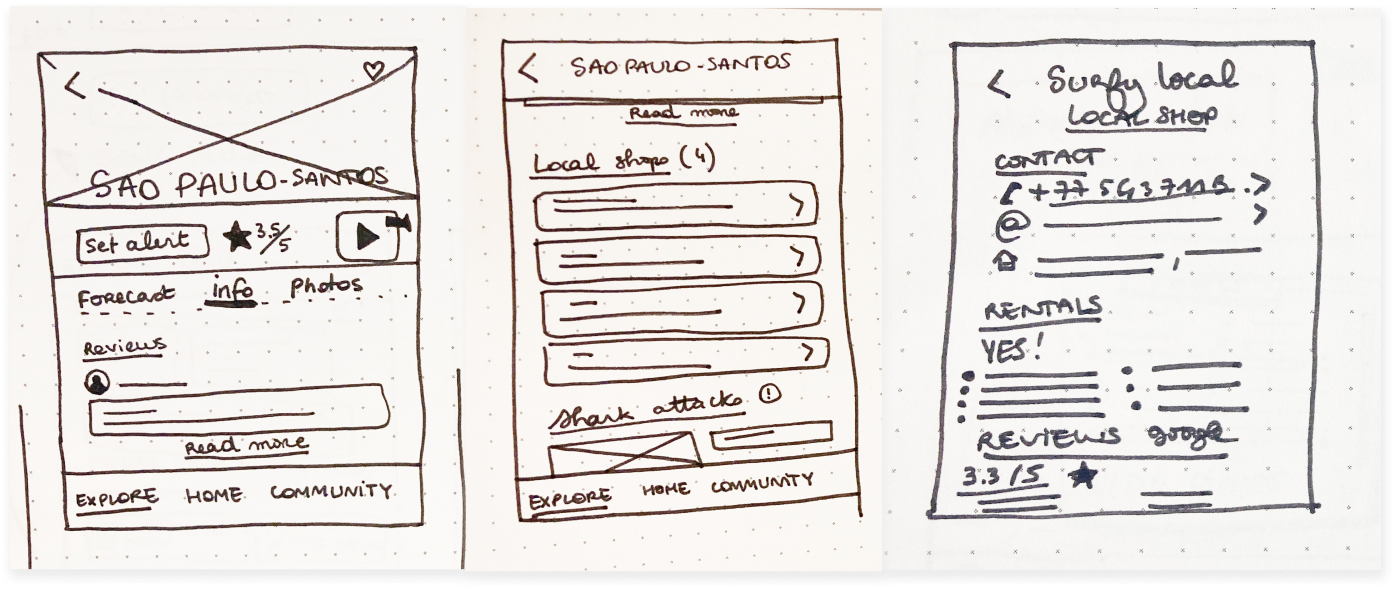 <
SAO PAULO-SANTOS
Set alert ★ 3.5/5
Forecast info Photos
Reviews
Read more
EXPLORE HOME COMMUNITY
< SAO PAULO-SANTOS
Read more
Local shops (4)
>
>
>
>
Shark attacks !
EXPLORE HOME COMMUNITY
< Surfy local
LOCAL SHOP
CONTACT
>
@ >
,
RENTALS
YES!
REVIEWS google
3.3/5 ★